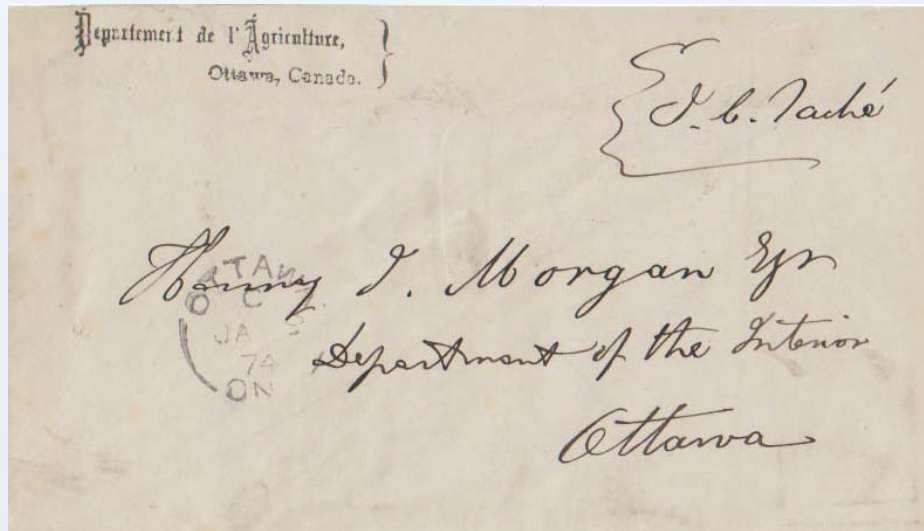 Département de l'Agriculture,
Ottawa, Canada.
J. C. Taché
Henry J. Morgan Esqr
Department of the Interior
Ottawa
OTTAWA
JA 9
74
ONT